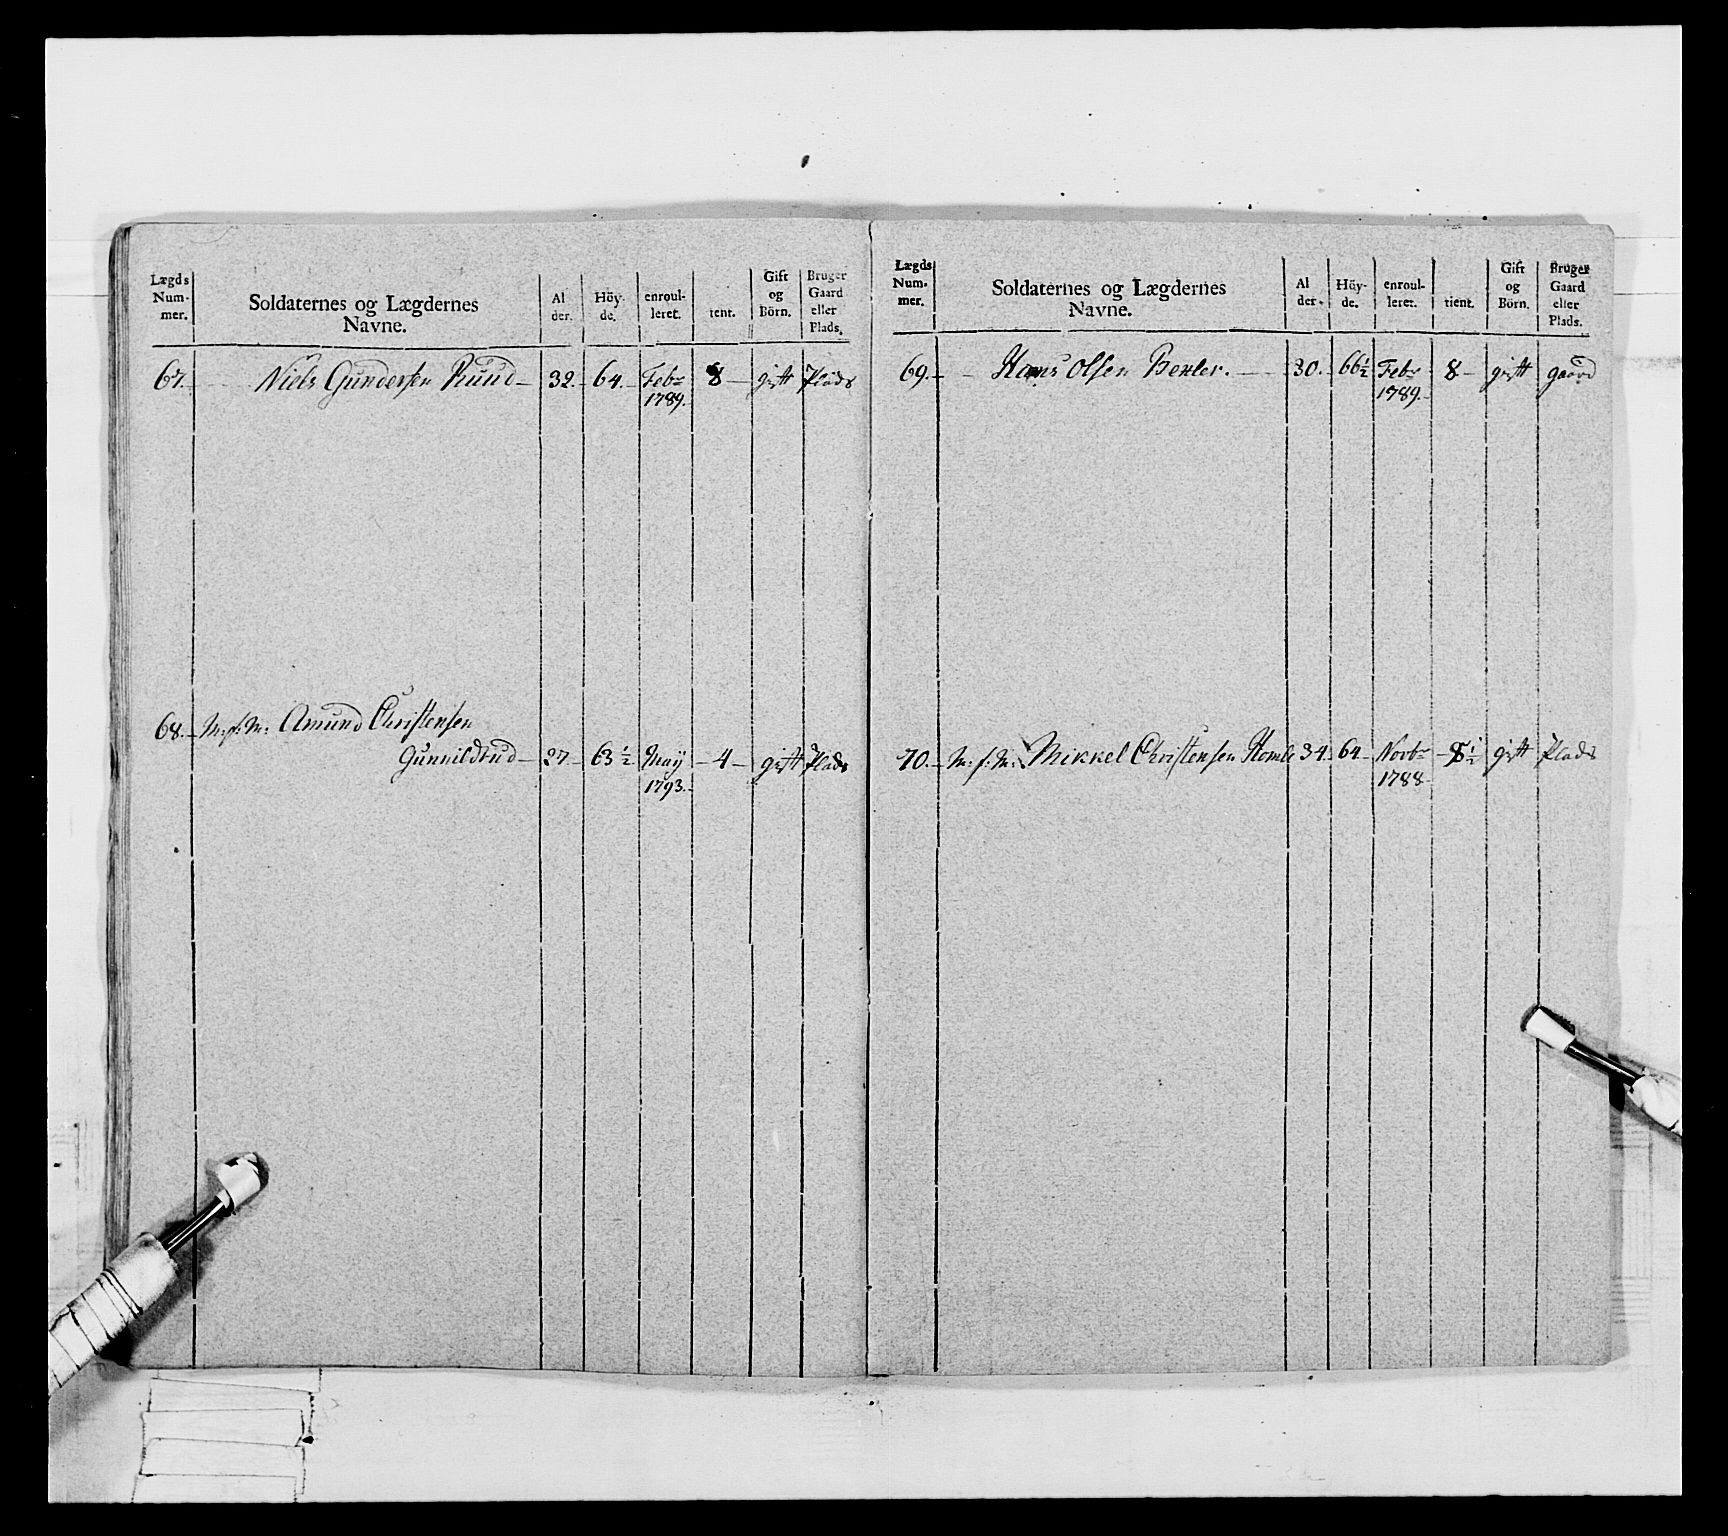 Lægds Num- mer.
Soldaternes og Lægdernes Navne.
Al der.
Höy- de.
enroul- leret.
tient.
Gift og Börn.
Bruger Gaard eller Plads.
67. Niels Gundersen Ruud 32. 64. Febr 8 gift Plads
1789.
68. M:s:M: Amund Christensen
Gunnildrud 27 63 ½ May 4 gift Plads
1793.
Lægds Num- mer.
Soldaternes og Lægdernes Navne.
Al der.
Höy- de.
enroul- leret.
tient.
Gift og Börn.
Bruger Gaard eller Plads.
69. Hans Olsen 30. 66½ Febr 8 gift gaard
1789.
70. M:s:M: Mikkel Christensen Homle 34. 64 Novbr 8½ gift Plads
1788